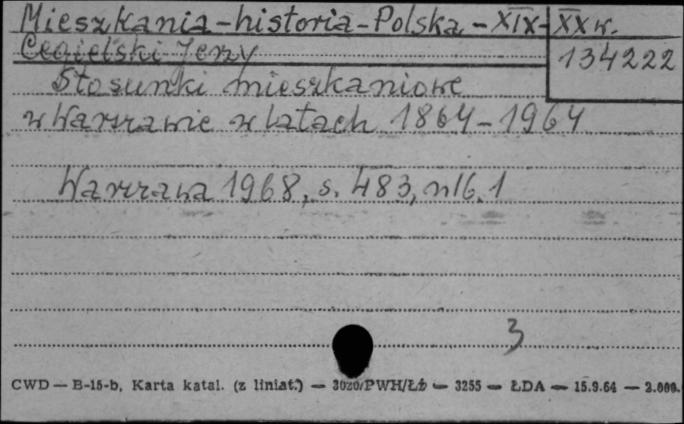 Mieszkania-historia-Polska-XIX-XX w.
Cegielski Jerzy
134222
Stosunki mieszkaniowe
w Warszawie w latach 1864-1964
Warszawa 1968, s. 483, nlb. 1
3
CWD — B-15-b, Karta katal. (z liniat.) — 3020/PWH/Łż — 3255 — ŁDA — 15.9.64 — 2.000.